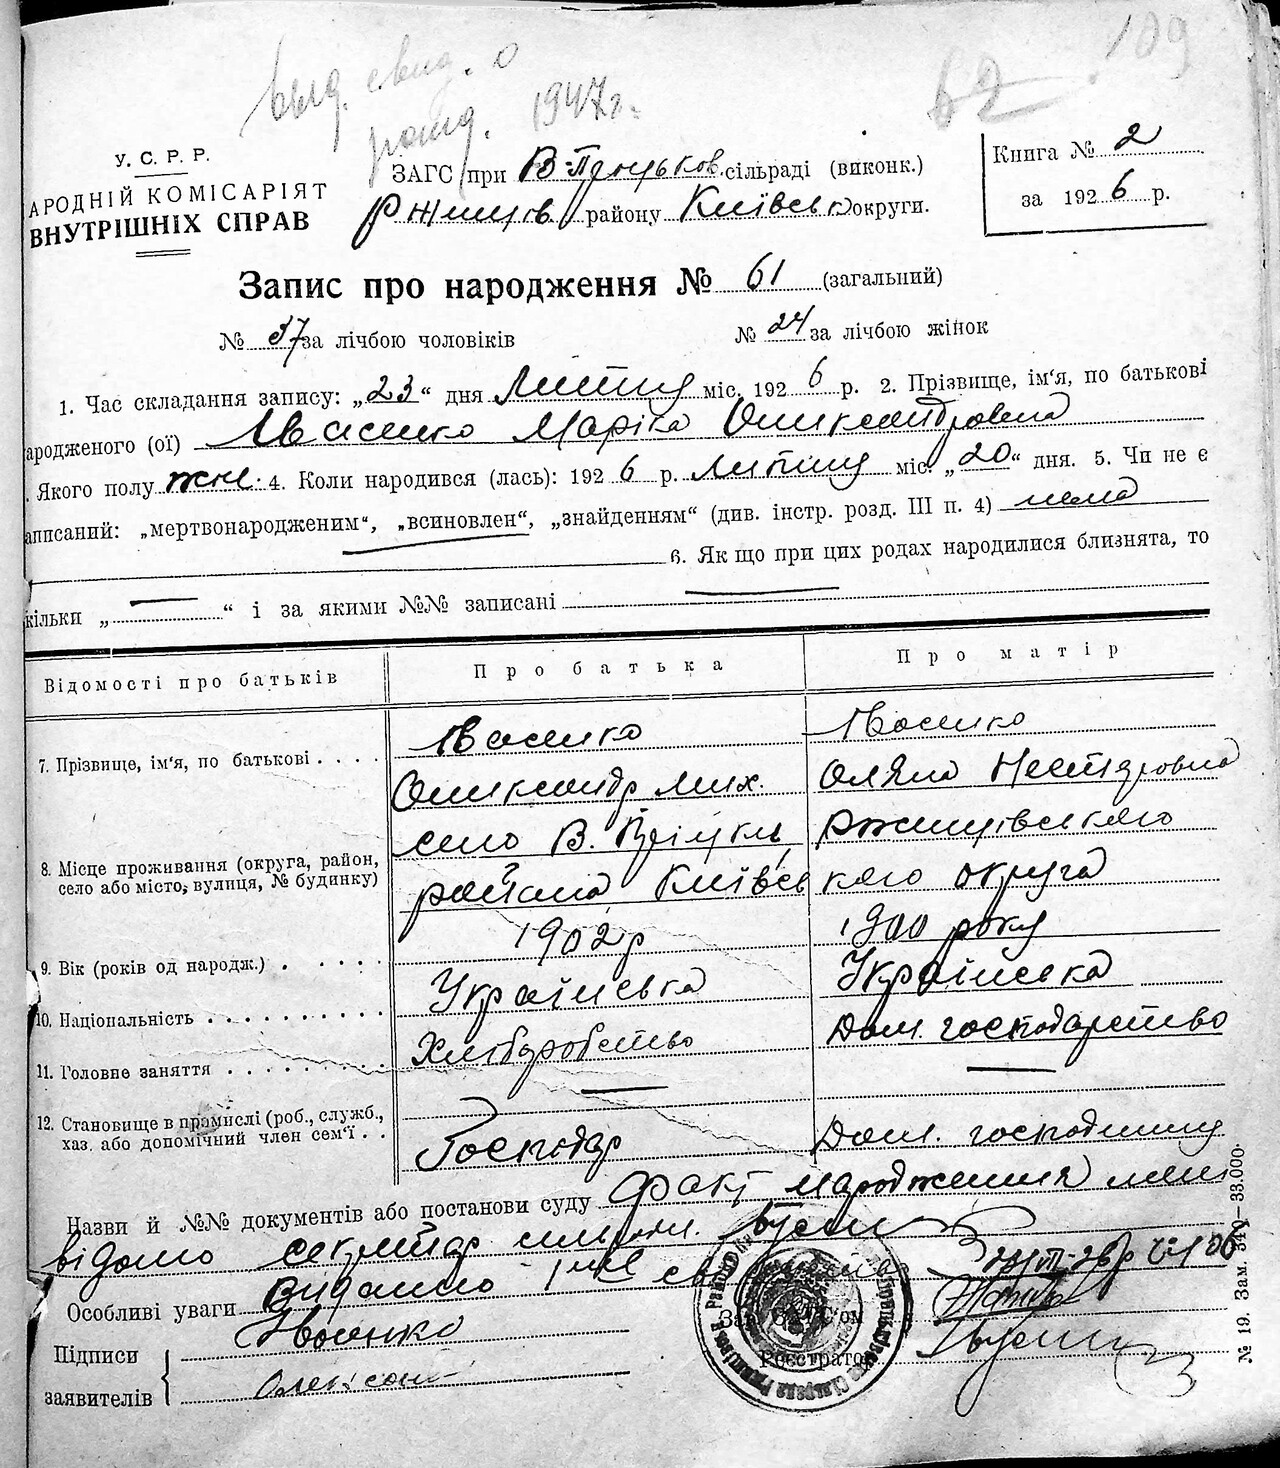 109
62
вид. свид. о
рожд. 1947г.
У. С. Р. Р.
АРОДНІЙ КОМІСАРІЯТ
ВНУТРІШНІХ СПРАВ
ЗАГС при сільраді (виконк.)
Ржищів району Київськ округи.
Книга № 2
за 1926 р.
Запис про народження № 61 (загальний)
№ 37 за лічбою чоловіків № 24 за лічбою жінок
1. Час складання запису: „23“ дня Липня міс. 1926 р. 2. Прізвище, ім‘я, по батькові
ародженого (ої) Івасенко Марія Олександровна
. Якого полу жін. 4. Коли народився (лась): 1926 р. Липня міс. „20“ дня. 5. Чи не є
аписаний: „мертвонародженим“, „всиновлен“, „знайденням“ (див. інстр. розд. III п. 4) нема
6. Як що при цих родах народилися близнята, то
кільки „ “ і за якими №№ записані
Відомості про батьків Про батька Про матір
7. Прізвище, ім‘я, по батькові . . . . Івасенко Івасенко
Олександр Мих. Оляна Несторовна
8. Місце проживання (округа, район, село або місто, вулиця, № будинку)
село В. Ржищівського
района Київсь кого округа
9. Вік (років од народж.) . . . . . 1902 р 1900 року
10. Національність . . . . . . . . . . Українська Українська
11. Головне заняття . . . . . . . . . Хліборобство Дом. господарство
12. Становище в промислі (роб., служб.,
хаз. або допомічний член сем‘ї . . Господар Дом. господиня
Назви й №№ документів або постанови суду Факт народження мені
відомо секретар
Особливі уваги Видано
Підписи Івасенко
заявителів Олександ
Зав. ЗАГС‘ом
Реєстратор
№ 19. Зам. 347—33.000.